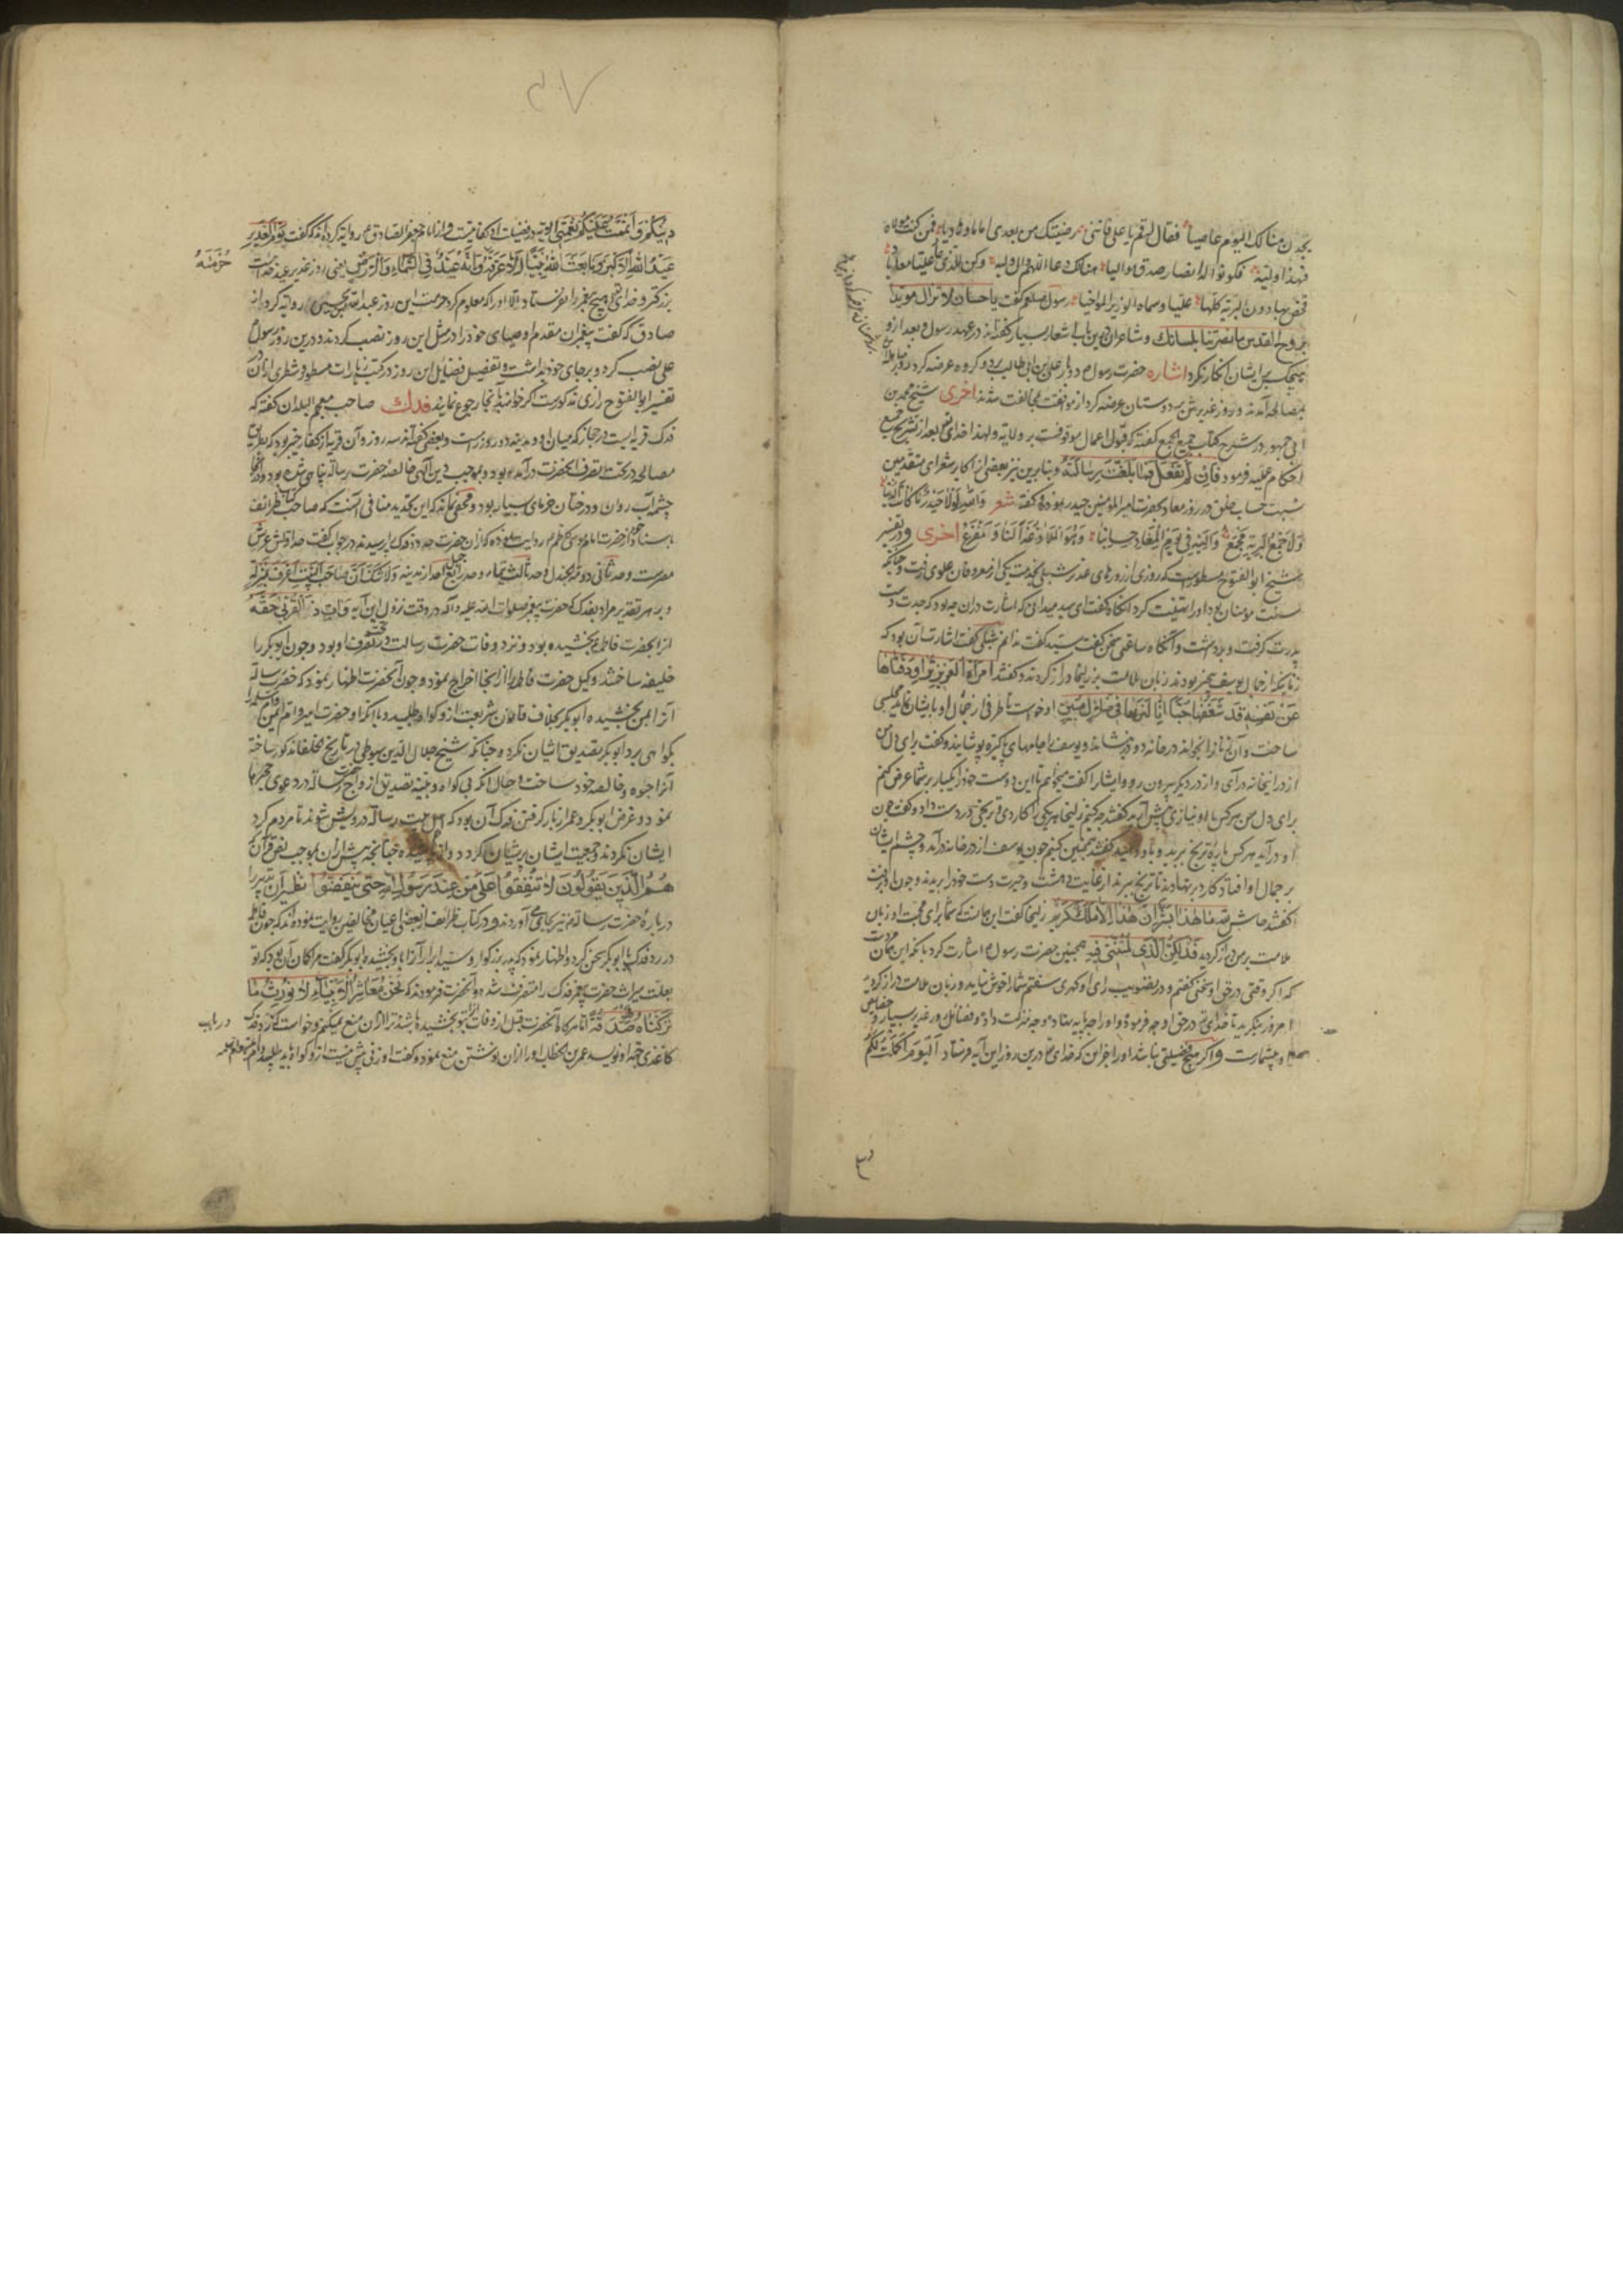 یجدن منا لک الیوم عاصیا فقال له قم یا علی فاننی رضیتک من بعدی اماما و هادیا فمن کنت مولاه
فهذا ولیه فکونوا له انصار صدق موالیا هناک دعا اللهم وال ولیه وکن للذی عادی علیا معادیا
فخص بها دون البریة کلها علیا وسماه الوزیر المواخیا رسول صلعم گفت یا حسان لا تزال مویدا
بروح القدس ما نصرتنا بلسانک و شاعران درین باب اشعار بسیار گفته‌اند در عهد رسول و بعد ازو
هیچکس بر ایشان انکار نکرد اشاره حضرت رسول دو بار علی بن ابی طالب بر دو گروه عرضه کرد روز مباهله
بمصالحه آمدند و روز غدیر بر دوستان عرضه کرد از موافقت بمخالفت شدند اخری شیخ محمد بن
ابی جمهور در شرح کتاب گفته که قبول اعمال موقوفست بر ولایة و لهذا خدای بعد از تشریع جمیع
احکام علیه فرمود فان لم تفعل فما بلغت رسالته و بنابرین نیز بعضی از اکابر شعرای متقدمین
نسبت حساب خلق در روز معاد بحضرت امیر المومنین حیدر نموده گفته شعر والله لولا حیدر ما کانت الدنیا
ولا جمع البریة مجمع والیه فی یوم المعاد حسابنا وهو الملاذ لنا غدا والمفزع اخری و در تفسیر
شیخ ابو الفتوح مسطورست که روزی از روزهای غدیر شبلی بخدمت یکی از معروفان علوی رفت و چنانکه
سنت مومنان بود او را تهنیت کرد آنگاه گفت ای سید میدانی که اشارت دران چه بود که جدت دست
پدرت گرفت و برداشت و آنگاه سخن گفت سید گفت ندانم شبلی گفت اشارت بآن بود که
زنانی که از جمال یوسف بیخبر بودند زبان ملامت بر زلیخا دراز کردند و گفتند امرأة العزیز تراود فتاها
عن نفسه قد شغفها حبا انا لنریها فی ضلال مبین او خواست تا طرفی از جمال او بایشان نماید مجلسی
ساخت و آن زنانرا بخواند در خانه دو در بنشاند و یوسف را جامهای پاکیزه پوشانید و گفت برای دل من
از در اینخانه درآی و از در دیگر بیرون رو و ایشانرا گفت میخواهم تا این دوست خود را یکبار بر شما عرض کنم
برای دل من هرکس با او نیازی پیش آرید گفتند چه کنیم زلیخا هر یکی را کاردی و ترنجی در دست داد و گفت چون
او درآید هرکس پارهٔ ترنج ببرید و باو دهید گفتند همچنین کنیم چون یوسف از در خانه درآمد و چشم ایشان
بر جمال او افتاد کارد بر نهادند تا ترنج ببرند از غایت دهشت و حیرت دست خود را ببریدند و چون او برفت
گفتند حاش لله ما هذا بشرا ان هذا الا ملک کریم زلیخا گفت این آنست که شما برای محبت او زبان
ملامت بر من دراز کردید فذلکن الذی لمتننی فیه همچنین حضرت رسول اشارت کرد بآنکه این همان مردست
که اگر وقتی در حق او سخنی گفتم و در تصویب رای او گهری سفتم شما را خوش نیامد و زبان ملامت دراز کردید
امروز بنگرید تا خدای در حق او چه فرموده و او را چه پایه نهاد و چه منزلت داد و فضائل روز غدیر بسیار و خصایص
او بیشمارست و اگر هیچ فضیلتی نباشد او را جز این که خدای درین روز این آیه فرستاد الیوم اکملت لکم
دینکم واتممت علیکم نعمتی الایه در فضیلت او کفایتست و از امام جعفر الصادق روایة کرده‌اند که گفت یوم الغدیر
عید الله الاکبر وما بعث الله نبیا الا عرفه وانه عید فی السماء والارض یعنی روز غدیر عید خداست
حرمته
بزرگتر و خدای هیچ پیغمبر را نفرستاد الا او را که معلوم کرد حرمت این روز عبد الله بن یحیی روایة کرد از
صادق که گفت پیغمبران مقدم اوصیای خود را در مثل این روز نصب کردند و درین روز رسول
علی نصب کرد و بر جای خود بداشت و تفصیل فضایل این روز در کتب زیارات مسطور و شطری ازان
تفسیر ابو الفتوح رازی مذکورست اگر خواهند بآنجا رجوع نمایند فدک صاحب معجم البلدان گفته که
فدک قریه‌ایست در حجاز که میان او و مدینه دو روز راهست و بعضی گفته‌اند سه روز و آن قریه از کفار خیبر بود که بطریق
مصالحه در تحت تصرف آنحضرت درآمده بود و بموجب دین الهی خالصه حضرت رسالة پناهی شده بود و در آنجا
چشمه آب روان و درختان خرمای بسیار بود و مخفی نماند که این تحدید منافی آنست که صاحب کتاب طرائف
باسناد خود از حضرت امام موسی کاظم روایت نموده که از آن حضرت حدود فدک پرسیدند در جواب گفت حد اولش عریش
مصرست وحد ثانی دومة الجندل وحد ثالث تیماء وحد رابع جبل احد از مدینه ولا شک ان صاحب البیت اعرف بمنزله
و بر هر تقدیر مراد بفدک که حضرت پیغمبر صلوات الله علیه وآله در وقت نزول این آیه وآت ذا القربی حقه
آنرا بحضرت فاطمه بخشیده بود و نزد وفات حضرت رسالت در تحت تصرف او بود و چون ابو بکر را
خلیفه ساختند وکیل حضرت فاطمه را از آنجا اخراج نمود و چون آنحضرت اظهار نمود که حضرت رسالة
آنرا بمن بخشیده ابو بکر بخلاف قانون شریعت ازو گواه طلبید و با آنکه او حضرت امیر و ام ایمن
بگواهی برد ابو بکر تصدیق ایشان نکرد و چنانکه شیخ جلال الدین سیوطی در تاریخ الخلفا مذکور ساخته
آنرا خالصه خود ساخت و حال آنکه بی گواه و بینه تصدیق ازواج حضرت رسالة در دعوی حجرها
نمود و غرض ابو بکر و عمر از باز گرفتن فدک آن بود که اهل بیت رسالة درویش شوند تا مردم گرد
ایشان نگردند و جمعیت ایشان پریشان گردد چنانچه پیش ازان بموجب نص قرآن که
هم الذین یقولون لا تنفقوا علی من عند رسول الله حتی ینفضوا نظیر آن تدبیر را
دربارهٔ حضرت رسالة نیز بجای می آوردند و در کتاب طرائف از بعضی اعیان مخالفین روایت نموده‌اند که چون فاطمه
در رد فدک با ابو بکر سخن کرد و اظهار نمود که پدر بزرگوار و سید ابرار آنرا باو بخشیده ابو بکر گفت مرا گمان آن بود که تو
بعلت میراث حضرت پیغمبر فدک را متصرف شده و آنحضرت فرمودند که نحن معاشر الانبیاء لا نورث ما
ترکناه صدقة اما هرگاه آنحضرت قبل از وفات آنرا بتو بخشیده باشد ترا ازان منع نمیکنم و خواست که در رد فدک
در باب
کاغذی جهة او نویسد عمر بن الخطاب او را ازان نوشتن منع نمود و گفت او زنی بیش نیست ازو گواه باید طلبید